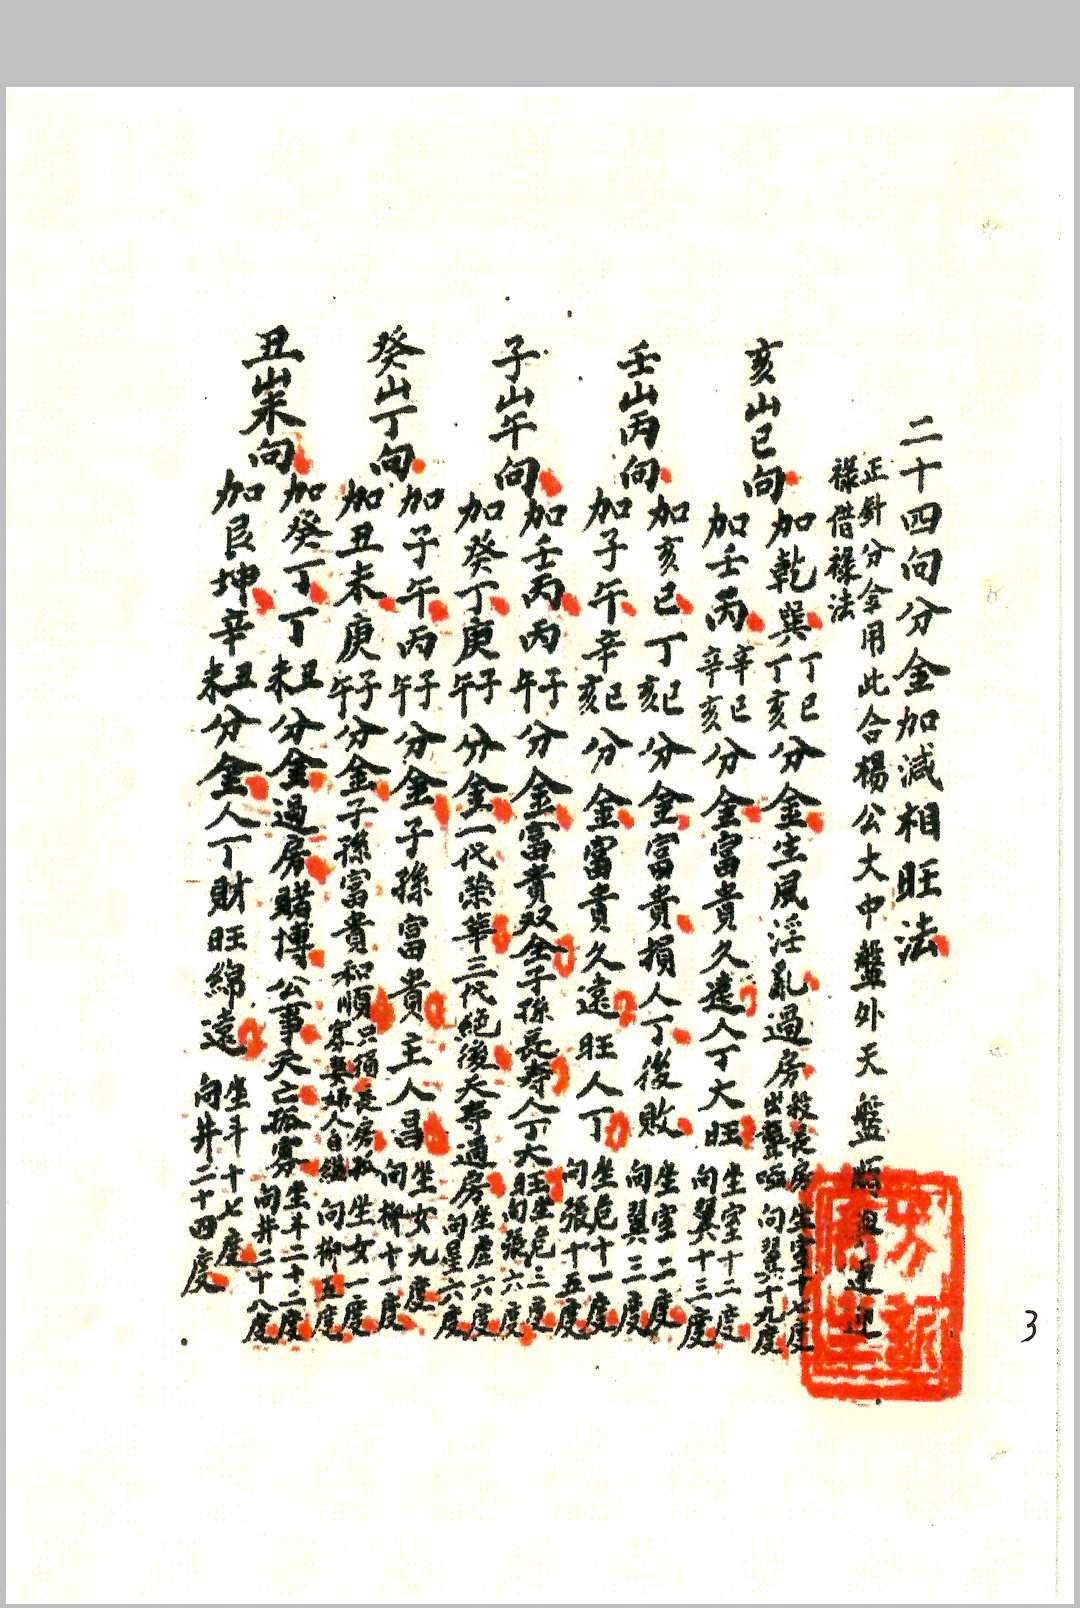 二十四向分金加減相旺法
正針分金用此合楊公大中盤外天盤
祿借祿法
亥山巳向
加乾巽丁巳丁亥分金生風淫亂過房殺長房出聾啞坐室十七度向翼十九度
加壬丙辛巳辛亥分金富貴久遠人丁大旺坐室十二度向翼十三度
壬山丙向
加亥巳丁巳亥分金富貴損人丁後敗坐室二度向翼三度
加子午辛巳亥分金富貴久遠旺人丁坐危十一度向張十五度
子山午向
加壬丙丙子午分金富貴双全子孫長壽人丁大旺坐危三度向張六度
加癸丁庚子午分金一代榮華三代絕後夭壽過房坐虛六度向星六度
癸山丁向
加子午丙子午分金子孫富貴主人昌坐女九度向柳十一度
加丑未庚子午分金子孫富貴和順只損長房敗家要婦人自縊坐女一度向柳五度
丑山未向
加癸丁丁丑未分金過房賭博公事夭亡孤寡坐斗二十二度向井二十八度
加艮坤辛丑未分金人丁財旺綿遠坐斗十七度向井二十四度
3